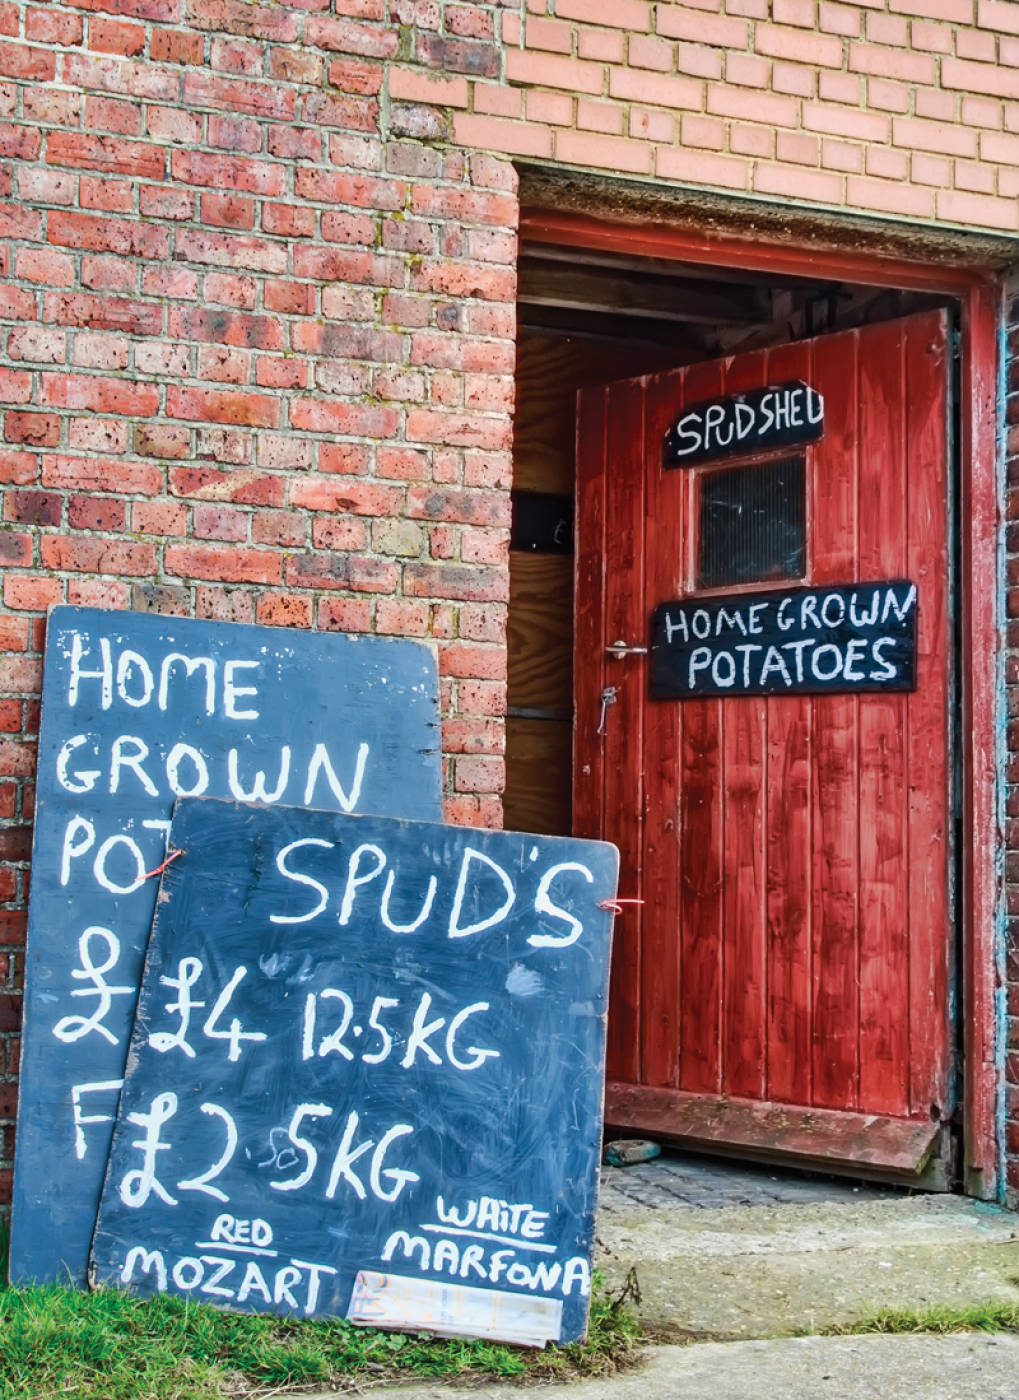 SPUD SHED
HOME GROWN
POTATOES
HOME
GROWN
POT
£
F
SPUD'S
£4 12·5KG
£2·50 5KG
RED
MOZART
WHITE
MARFONA